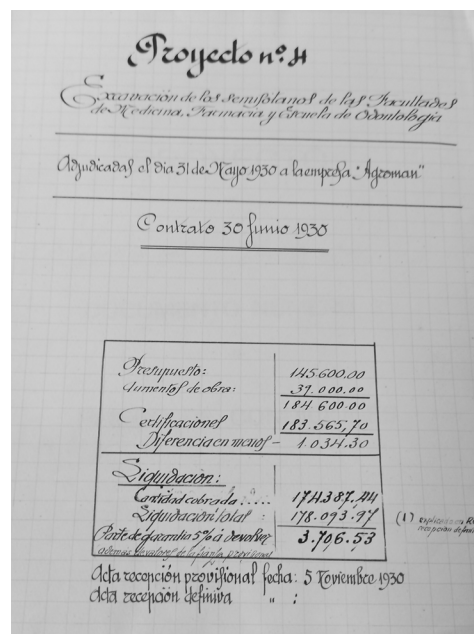 Proyecto nº. 4
Excavación de los semisótanos de las Facultades
de Medicina, Farmacia y Escuela de Odontología
Adjudicadas el dia 31 de Mayo 1930 a la empresa "Agroman"
Contrato 30 Junio 1930
Presupuesto: 145.600.00
Aumentos de obra: 39.000.00
184 600.00
Certificaciones 183.565,70
Diferencia en menos - 1.034.30
Liquidación:
Cantidad cobrada..... 174387,44
Liquidación total: 178.093.97
Parte de garantia 5% á devolver 3.706.53
además de valores de la fianza provisional
(1)
recepción
Acta recepción provisional fecha: 5 Noviembre 1930
Acta recepción definitiva " :